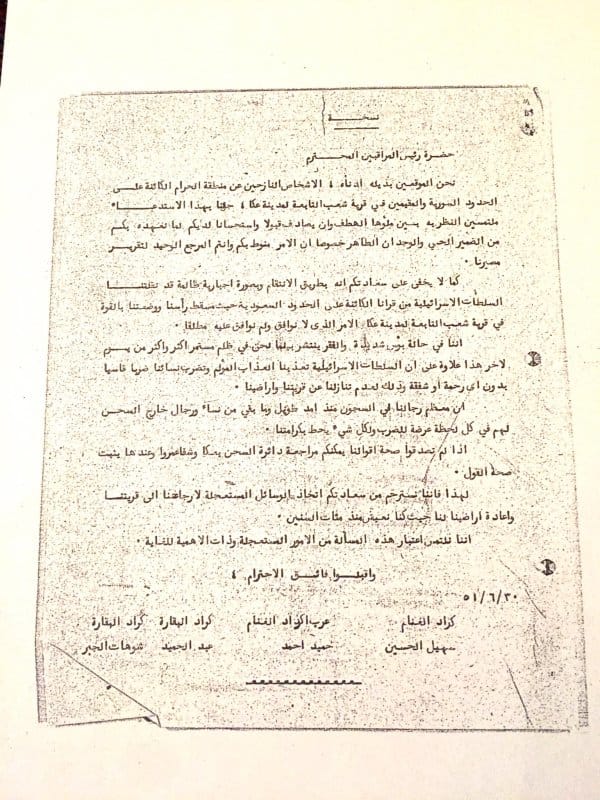 نسخـــة
حضرة رئيس المراقبين المحترم
نحن الموقعين بذيله أدناه ، الاشخاص النازحين عن منطقة الحرام الكائنة على
الحدود السورية والمقيمين في قرية شعب التابعة لمدينة عكا ، جئنا بهذا الاستدعاء
ملتمسين النظر به بعين ملؤها العطف وان يصادف قبولا واستحسانا لديكم لما نعهده بكم
من الضمير الحي والوجدان الطاهر خصوصا ان الامر منوط بكم وانتم المرجع الوحيد لتقرير
مصيرنا .
كما لا يخفى على سعادتكم انه بطريق الانتقام وبصورة اجبارية ظالمة قد نقلتنا
السلطات الاسرائيلية من قرانا الكائنة على الحدود السعودية حيث مسقط رأسنا ووضعتنا بالقوة
في قرية شعب التابعة لمدينة عكا، الامر الذى لا نوافق ولم نوافق عليه مطلقا .
اننا في حالة بؤس شديدة والفقر ينتشر بيننا لحق في ظلم مستمر اكثر واكثر من يوم
لاخر هذا علاوة على ان السلطات الاسرائيلية تعذبنا العذاب المؤلم وتضرب نسائنا ضربا قاسيا
بدون اي رحمة أو شفقة وذلك لعدم تنازلنا عن قريتنا واراضينا .
ان معظم رجالنا في السجون منذ امد طويل وما بقي من نساء ورجال خارج السجن
لهم في كل لحظة عرضة للضرب ولكل شيء يحط بكرامتنا .
اذا لم تصدقوا صحة اقوالنا يمكنكم مراجعة دائرة السجن بعكا وشفاعمرو وعندها يثبت
صحة القول .
لهذا فاننا نسترحم من سعادتكم اتخاذ الوسائل المستعجلة لارجاعنا الى قريتنا
واعادة اراضينا لنا حيث كنا نعيش منذ مئات السنين .
اننا نلتمس اعتبار هذه المسألة من الامور المستعجلة وذات الاهمية للغاية .
واقبلوا فائق الاحترام ،
٥١/٦/٣٠
كراد الغنام عرب اكراد الغنام كراد البقارة كراد البقارة
سهيل الحسين حميد احمد عبد الحميد شوهات الجبر